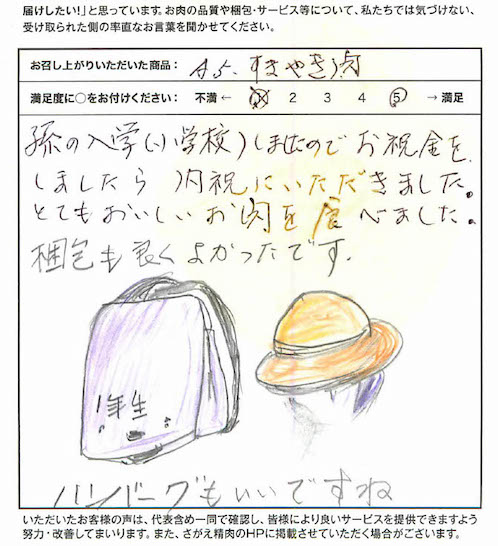 届けしたい!」と思っています。お肉の品質や梱包・サービス等について、私たちでは気づけない、
受け取られた側の率直なお言葉を聞かせてください。
お召し上がりいただいた商品: A5. すきやき
満足度に○をお付けください: 不満 ← 1 2 3 4 5 → 満足
孫の入学(小学校)しましたのでお祝金を
しましたら 内祝にいただきました。
とてもおいしいお肉を食べました。
梱包も良くよかったです。
1年生
ハンバーグもいいですね
いただいたお客様の声は、代表含め一同で確認し、皆様により良いサービスを提供できますよう
努力・改善してまいります。また、さがえ精肉のHPに掲載させていただく場合がございます。